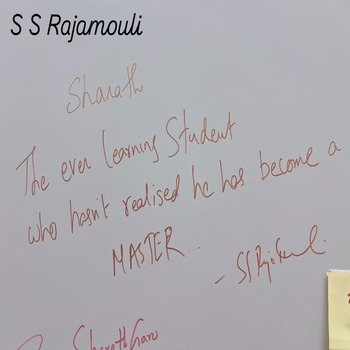 S S Rajamouli
Sharath
The ever learning Student
who hasn't realised he has become a
MASTER...
Sharath Garu